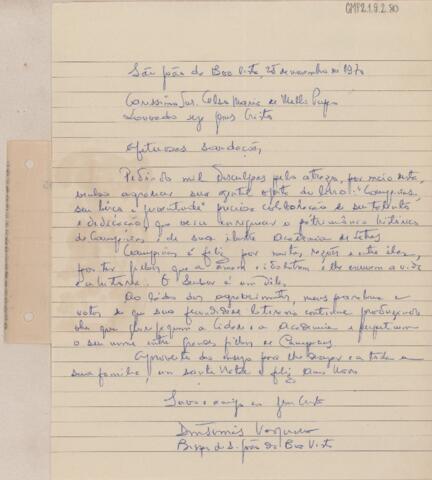 CMP2.1.9.2.90
São João da Boa Vista, 25 de novembro de 1970
Caríssimo Sr. Celso Maria de Mello Pupo
Louvado seja Jesus Cristo
Efusivas saudações,
Pedindo mil desculpas pelo atraso, por meio desta
venho agradecer sua gentil oferta do livro: "Campinas,
seu berço e juventude" preciosa colaboração de seu talento
e dedicação, que veio enriquecer o patrimônio histórico
de Campinas e de sua ilustre Academia de Letras
Campinas é feliz por muitas razões e entre elas,
por ter filhos que a amam e
e a cultura. O Senhor é um deles.
Ao lado dos agradecimentos, meus parabéns e
votos de que sua fecundidade literária continue produzindo
obras que a cidade e a Academia e perpetuem
o seu nome entre os grandes filhos de Campinas
Aproveito do ensejo para lhe desejar e a toda a
sua família, um santo Natal e feliz Ano Novo
Servo e amigo em Jesus Cristo
Tomás Vaquero
Bispo de S. João da Boa Vista